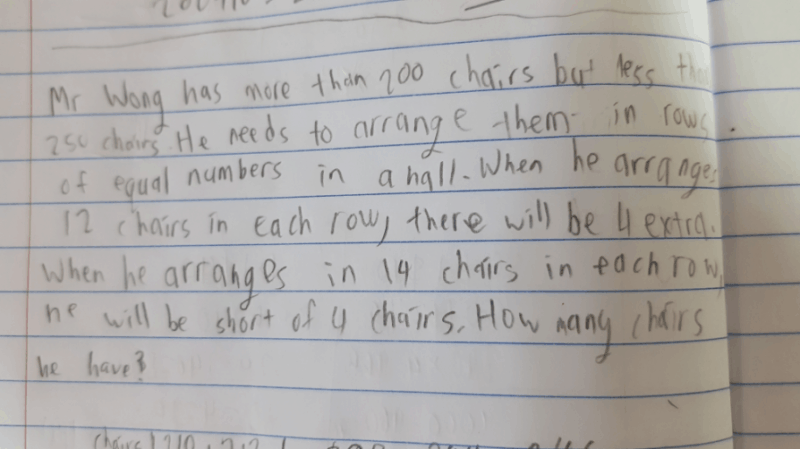 Mr Wong has more than 200 chairs but less
250 chairs. He needs to arrange them in rows.
of equal numbers in a hall. When he arranges
12 chairs in each row, there will be 4 extra.
When he arranges in 14 chairs in each row,
he will be short of 4 chairs. How many chairs
he have?